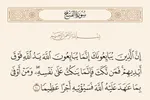 سورة الفتح
إن الذين يبايعونك إنما يبايعون الله يد الله فوق
أيديهم فمن نكث فإنما ينكث على نفسه ومن أوفى
بما عاهد عليه الله فسيؤتيه أجرا عظيما